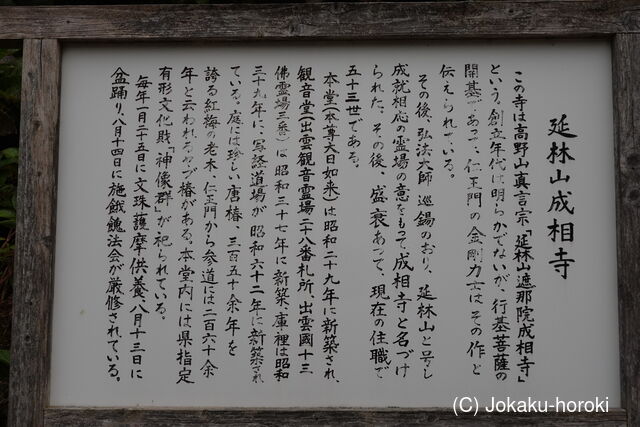 延林山成相寺
この寺は高野山真言宗「延林山遮那院成相寺」
という。創立年代は明らかでないが、行基菩薩の
開基であって、仁王門の金剛力士はその作と
伝えられている。
その後、弘法大師巡錫のおり、延林山と号し
成就相応の霊場の意をもって、成相寺と名づけ
られた。その後、盛衰あって、現在の住職で
五十三世である。
本堂(本尊大日如来)は昭和二十九年に新築され、
観音堂(出雲観音霊場二十八番札所、出雲國十三
佛霊場三番)は昭和三十七年に新築・庫裡は昭和
三十九年に、写経道場が昭和六十二年に新築され
ている。庭には珍しい唐椿、三百五十余年を
誇る紅梅の老木・仁王門から参道には二百六十余
年と云われるやぶ椿がある。本堂内には県指定
有形文化財「神像群」が祀られている。
毎年一月二十五日に文珠護摩供養、八月十三日に
盆踊り、八月十四日に施餓鬼法会が厳修されている。
(C) Jokaku-horoki